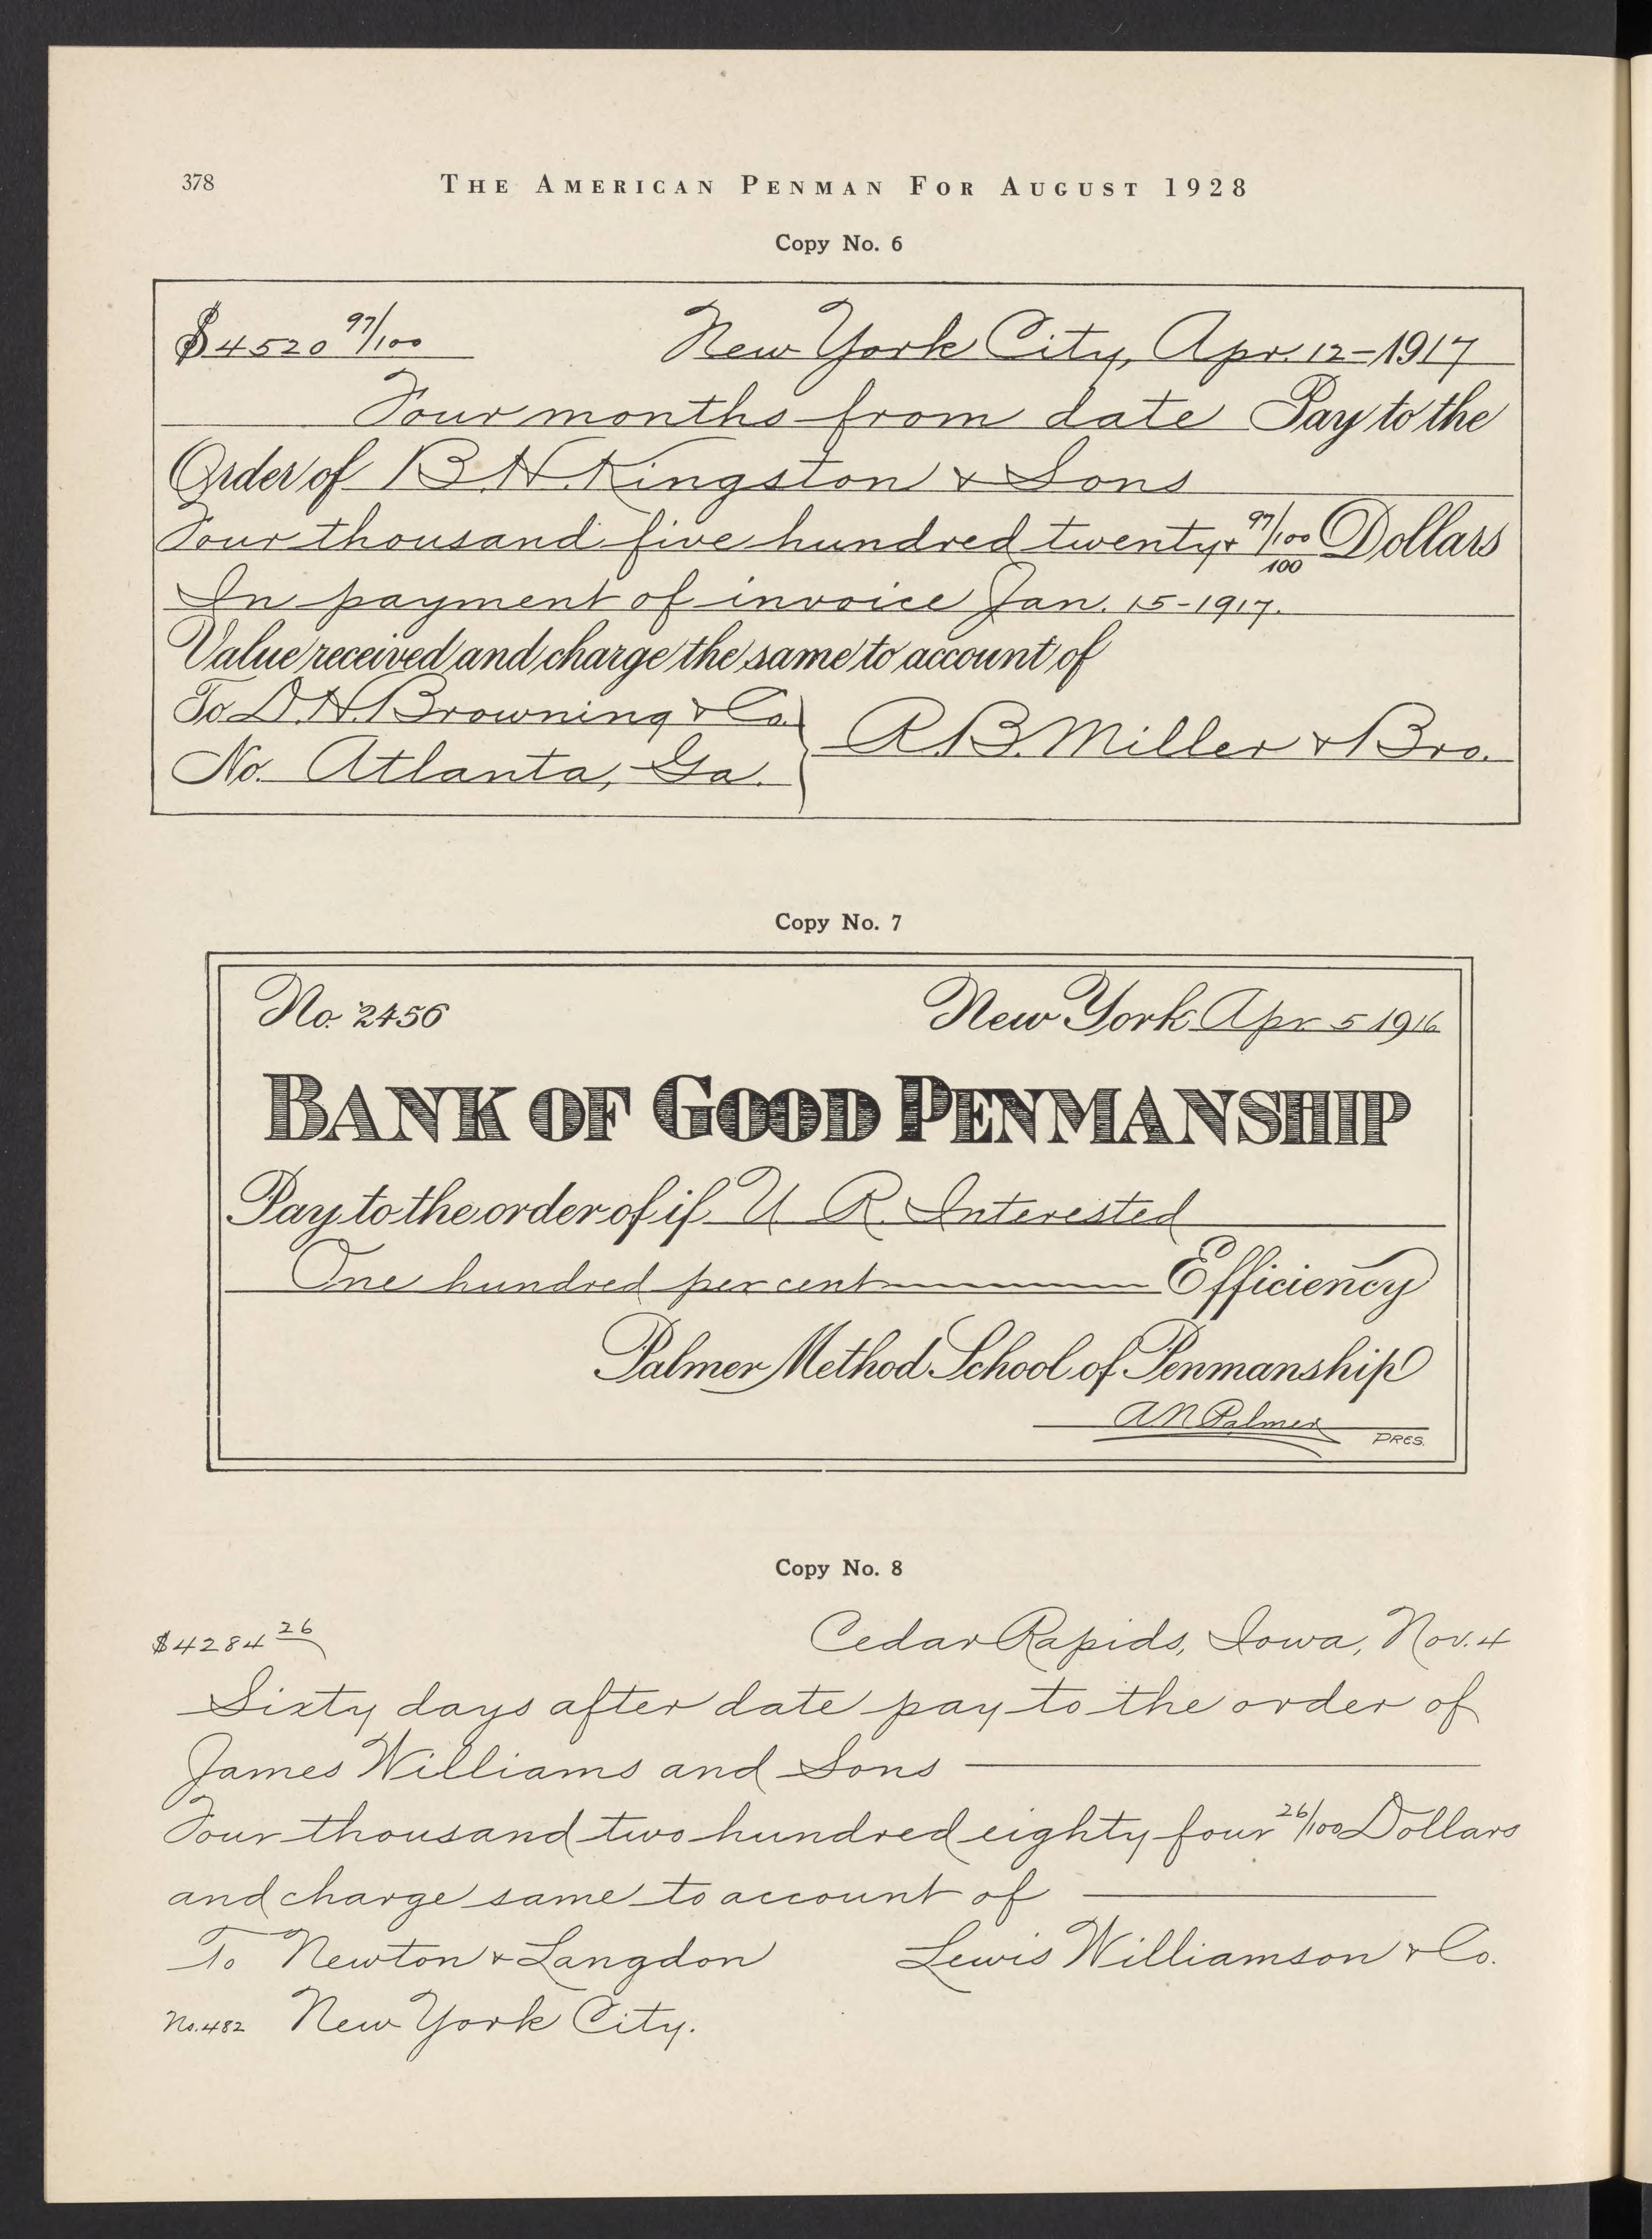 378
THE AMERICAN PENMAN FOR AUGUST 1928
Copy No. 6
$4520 97/100 New York City, Apr. 12-1917
Four months from date Pay to the
Order of B. H. Kingston & Sons
Four thousand five hundred twenty & 97/100 Dollars
100
In payment of invoice Jan. 15-1917.
Value received and charge the same to account of
To D. H. Browning & Co.
No. Atlanta, Ga.
R. B. Miller & Bro.
Copy No. 7
No. 2456 New York Apr 5 1916
BANK OF GOOD PENMANSHIP
Pay to the order of if U R. Interested
One hundred per cent Efficiency
Palmer Method School of Penmanship
A N Palmer
PRES.
Copy No. 8
$4284 26 Cedar Rapids, Iowa, Nov. 4
Sixty days after date pay to the order of
James Williams and Sons
Four thousand two hundred eighty four 26/100 Dollars
and charge same to account of
To Newton & Langdon Lewis Williamson & Co.
No. 482 New York City.